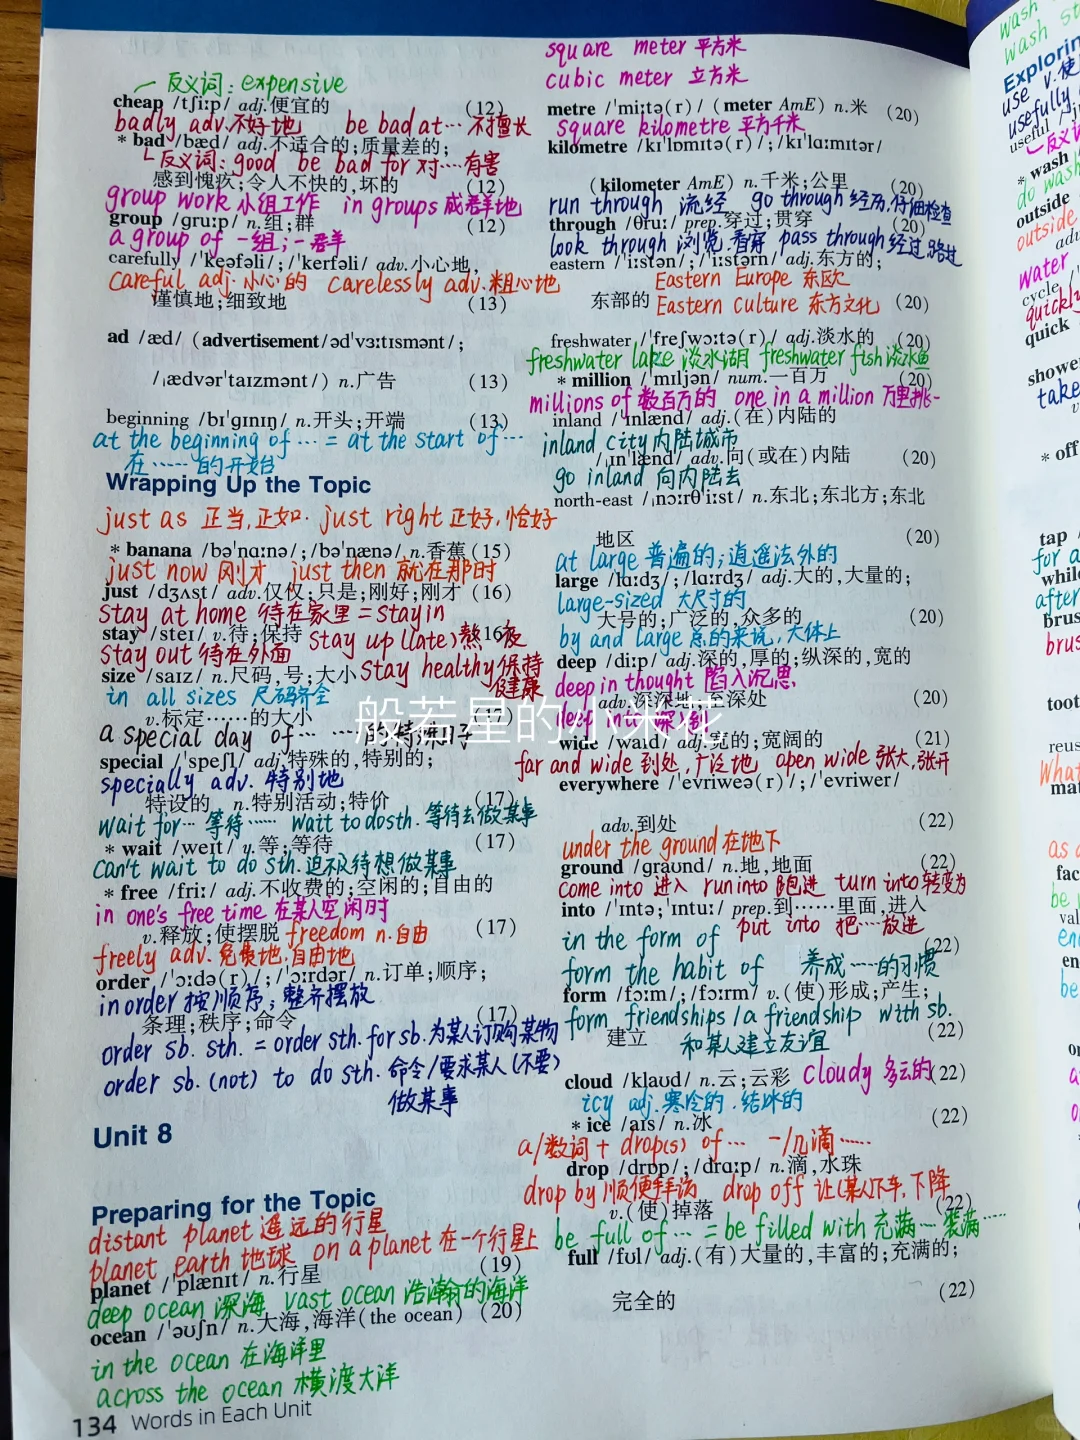 反义词: expensive
cheap /tʃiːp/ adj.便宜的 (12)
badly adv.不好地 be bad at… 不擅长
* bad /bæd/ adj.不适合的;质量差的;
反义词: good be bad for 对……有害
感到愧疚;令人不快的,坏的 (12)
group work 小组工作 in groups 成群地
group /ɡruːp/ n.组;群 (12)
a group of 一组;一群
carefully /ˈkeəfəli/;/ˈkerfəli/ adv.小心地,
careful adj.小心的 carelessly adv.粗心地
谨慎地;细致地 (13)
ad /æd/ (advertisement/ədˈvɜːtɪsmənt/;
/ˌædvərˈtaɪzmənt/) n.广告 (13)
beginning /bɪˈɡɪnɪŋ/ n.开头;开端 (13)
at the beginning of … = at the start of …
在……的开始
Wrapping Up the Topic
just as 正当,正如. just right 正好,恰好
* banana /bəˈnɑːnə/;/bəˈnænə/ n.香蕉 (15)
just now 刚才 just then 就在那时
just /dʒʌst/ adv.仅仅;只是;刚好;刚才 (16)
stay at home 待在家里 = stay in
stay /steɪ/ v.待;保持 stay up (late) 熬夜 (16)
stay out 待在外面
size /saɪz/ n.尺码,号;大小 stay healthy 保持健康
in all sizes 尺码齐全
v.标定……的大小 (17)
a special day of… …的特殊日子
special /ˈspeʃl/ adj.特殊的,特别的;
specially adv. 特别地
特设的 n.特别活动;特价 (17)
wait for… 等待…… wait to do sth. 等待去做某事
* wait /weɪt/ v.等;等待 (17)
can't wait to do sth. 迫不及待想做某事
* free /friː/ adj.不收费的;空闲的;自由的
in one's free time 在某人空闲时
v.释放;使摆脱 freedom n.自由 (17)
freely adv.免费地.自由地
order /ˈɔːdə(r)/;/ˈɔːrdər/ n.订单;顺序;
in order 按顺序;整齐摆放
条理;秩序;命令 (17)
order sb. sth. = order sth. for sb.为某人订购某物
order sb. (not) to do sth. 命令/要求某人(不要)
做某事
Unit 8
Preparing for the Topic
distant planet 遥远的行星
planet earth 地球 on a planet 在一个行星上
planet /ˈplænɪt/ n.行星 (19)
deep ocean 深海 vast ocean 浩瀚的海洋
ocean /ˈəʊʃn/ n.大海,海洋(the ocean) (20)
in the ocean 在海洋里
across the ocean 横渡大洋
134 Words in Each Unit
square meter 平方米
cubic meter 立方米
metre /ˈmiːtə(r)/ (meter AmE) n.米 (20)
square kilometre 平方千米
kilometre /kɪˈlɒmɪtə(r)/;/kɪˈlɑːmɪtər/
(kilometer AmE) n.千米;公里 (20)
run through 流经 go through 经历,仔细检查
through /θruː/ prep.穿过;贯穿 (20)
look through 浏览.看穿 pass through 经过.路过
eastern /ˈiːstən/;/ˈiːstərn/ adj.东方的;
Eastern Europe 东欧
东部的 Eastern culture 东方文化 (20)
freshwater /ˈfreʃwɔːtə(r)/ adj.淡水的 (20)
freshwater lake 淡水湖 freshwater fish 淡水鱼
* million /ˈmɪljən/ num.一百万 (20)
millions of 数百万的 one in a million 万里挑一
inland /ˈɪnlænd/ adj.(在)内陆的
inland city 内陆城市
/ˌɪnˈlænd/ adv.向(或在)内陆 (20)
go inland 向内陆去
north-east /ˌnɔːrθˈiːst/ n.东北;东北方;东北
地区 (20)
at large 普遍的;逍遥法外的
large /lɑːdʒ/;/lɑːrdʒ/ adj.大的,大量的;
large-sized 大尺寸的
大号的;广泛的,众多的 (20)
by and large 总的来说,大体上
deep /diːp/ adj.深的,厚的;纵深的,宽的
deep in thought 陷入沉思
adv.深深地;至深处 (20)
deep into 深入到
wide /waɪd/ adj.宽的;宽阔的 (21)
far and wide 到处,广泛地 open wide 张大,张开
everywhere /ˈevriweə(r)/;/ˈevriwer/
adv.到处 (22)
under the ground 在地下
ground /ɡraʊnd/ n.地,地面 (22)
come into 进入 run into 跑进 turn into 转变为
into /ˈɪntə;ˈɪntuː/ prep.到……里面,进入
in the form of put into 把…放进 (22)
form the habit of 养成……的习惯
form /fɔːm/;/fɔːrm/ v.(使)形成;产生;
form friendships / a friendship with sb.
建立 和某人建立友谊 (22)
cloud /klaʊd/ n.云;云彩 cloudy 多云的 (22)
icy adj.寒冷的.结冰的
* ice /aɪs/ n.冰 (22)
a/数词 + drop(s) of… 一/几滴……
drop /drɒp/;/drɑːp/ n.滴,水珠
drop by 顺便拜访 drop off 让(某人)下车,下降
v.(使)掉落 (22)
be full of … = be filled with 充满…装满……
full /fʊl/ adj.(有)大量的,丰富的;充满的;
完全的 (22)
般若星的小米花
wash
wash
Exploring
use v.使
usefully
useful
* wash
do wash
outside
outside
adv
water
cycle
quickly
quick
shower
take
* off
tap
for a
while
after
brus
brus
toot
reus
What
mat
as
fac
be
val
en
en
be